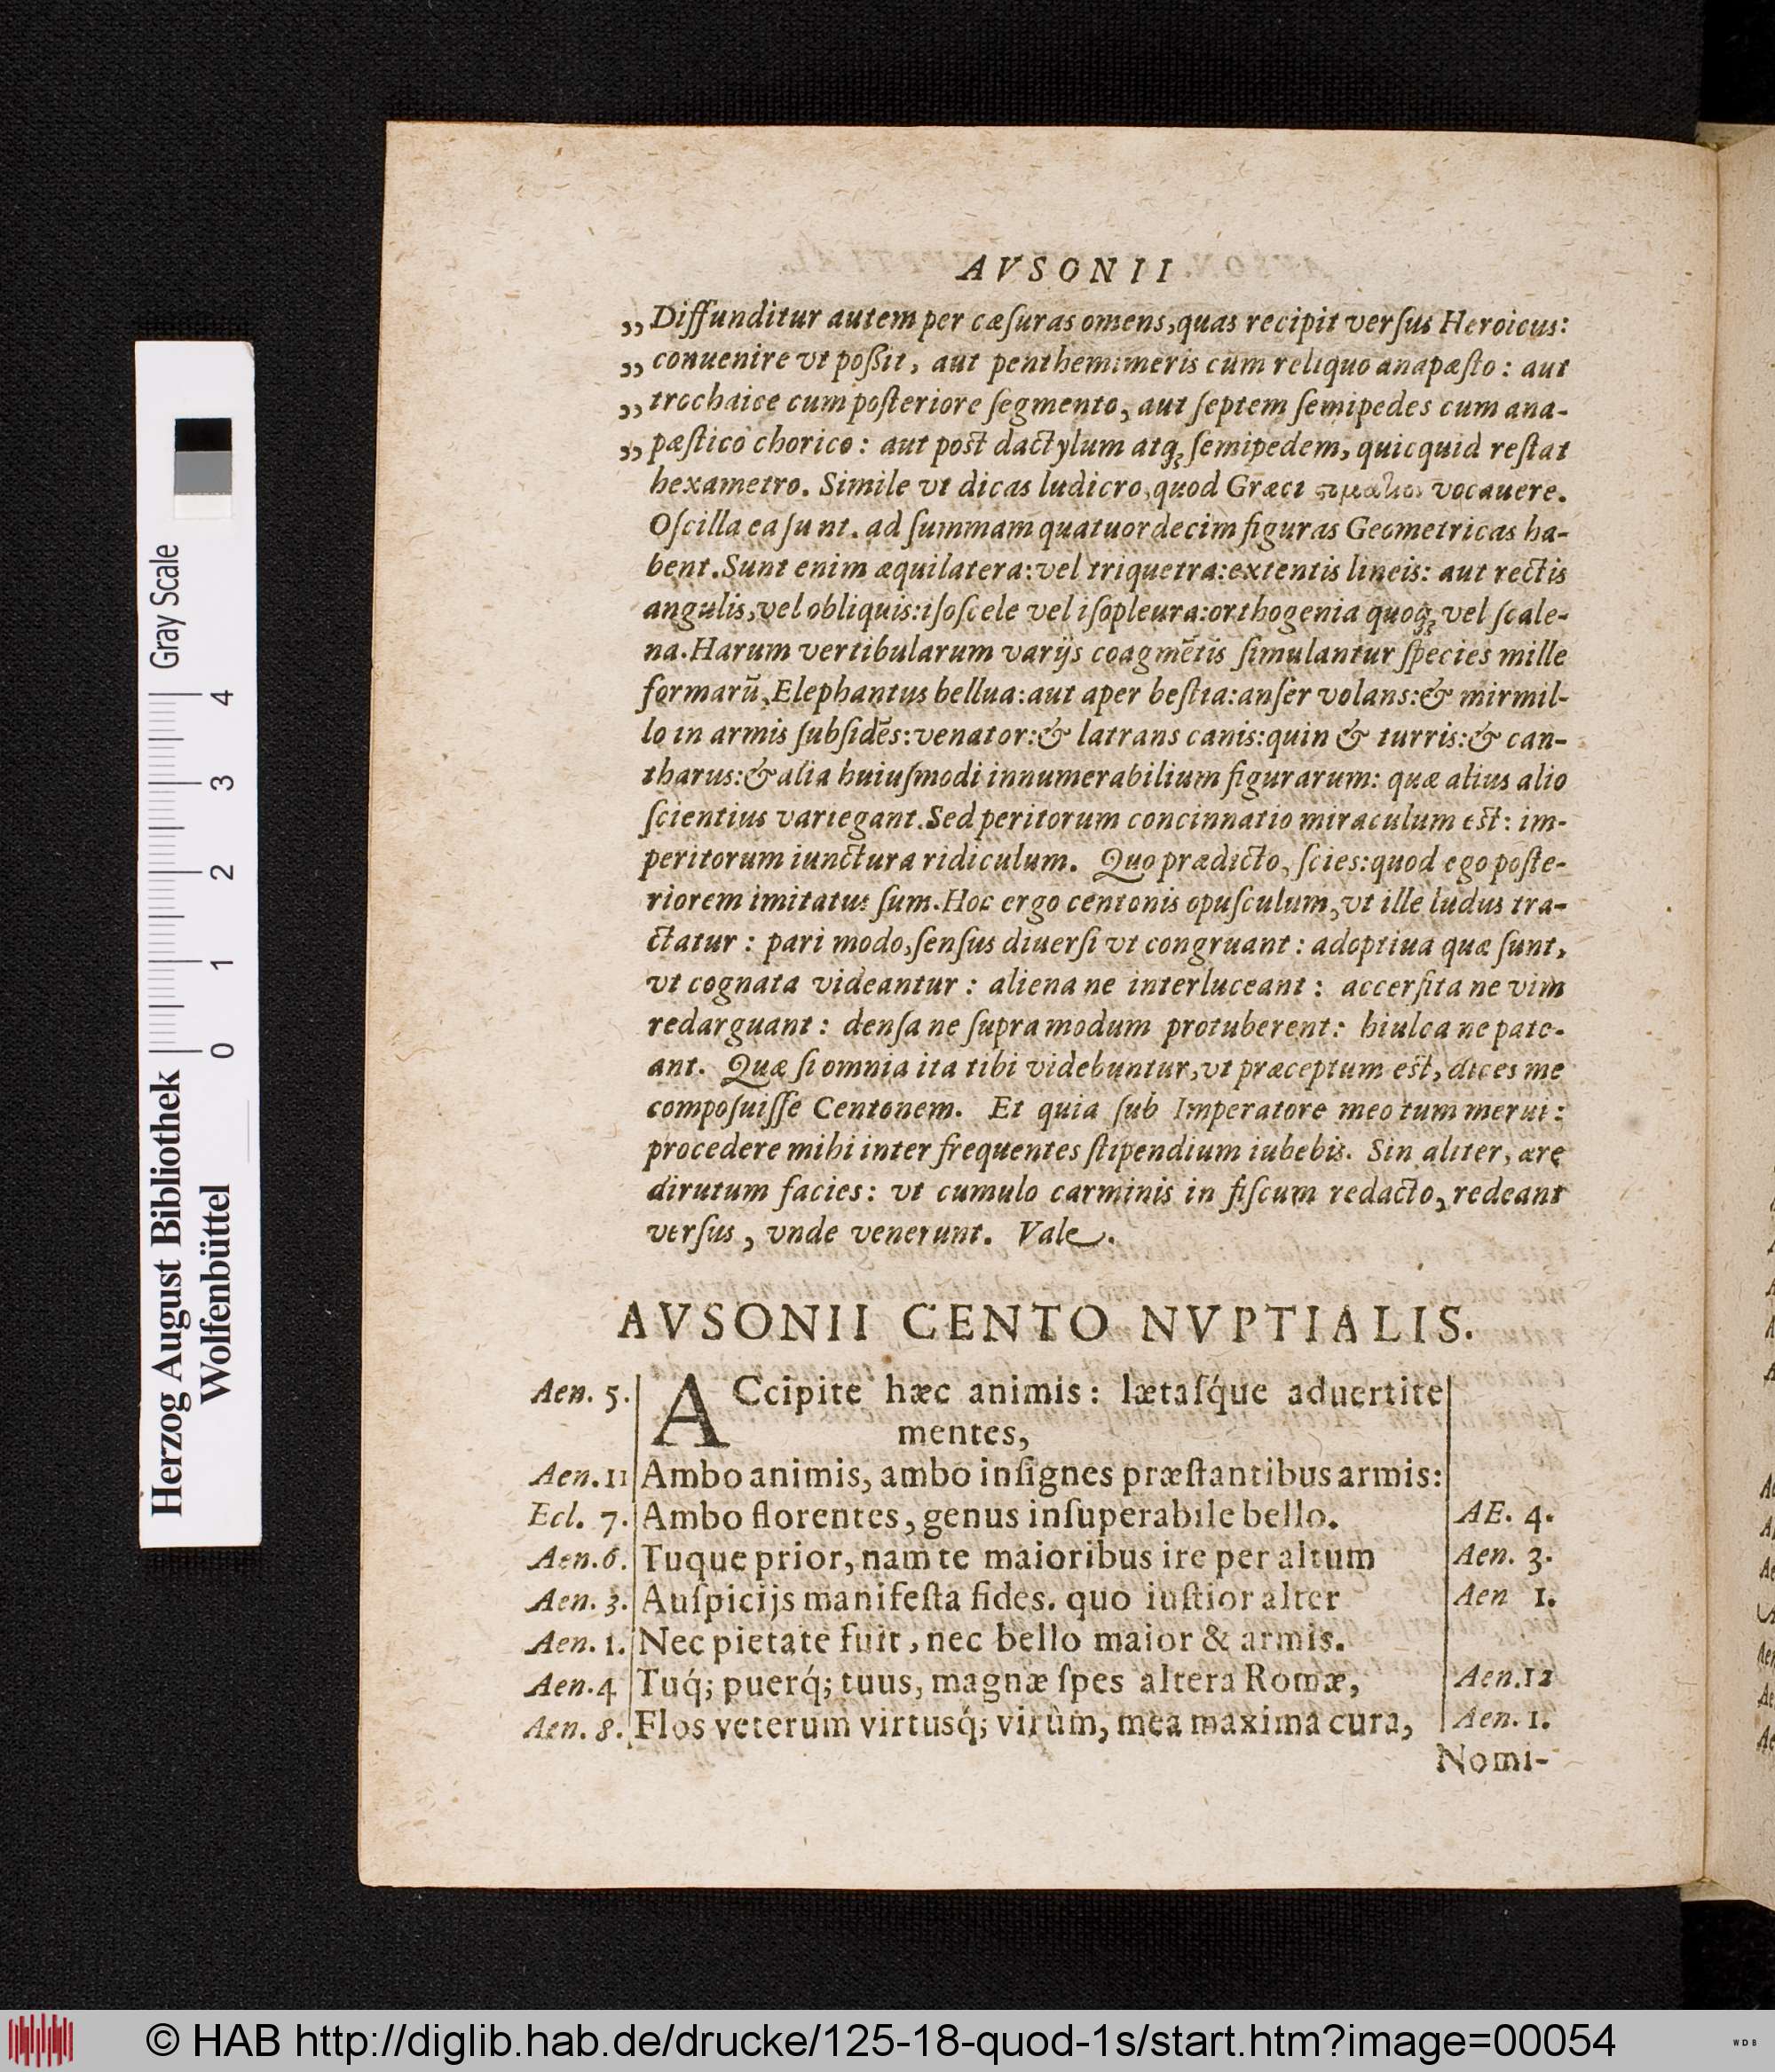 AVSONII
„ Diffunditur autem per cæſuras omens, quas recipit verſus Heroicus:
„ conuenire vt poßit, aut penthemimeris cum reliquo anapæſto: aut
„ trochaice cum poſteriore ſegmento, aut ſeptem ſemipedes cum ana-
„ pæſtico chorico: aut post dactylum atq; ſemipedem, quicquid reſtat
hexametro. Simile vt dicas ludicro, quod Græci vocauere.
Oſcilla ea ſunt. ad ſummam quatuordecim figuras Geometricas ha-
bent. Sunt enim æquilatera: vel triquetra: extentis lineis: aut rectis
angulis, vel obliquis: iſoſcele vel iſopleura: orthogenia quoq; vel ſcale-
na. Harum vertibularum varijs coagmẽtis ſimulantur ſpecies mille
formarũ, Elephantus bellua: aut aper beſtia: anſer volans: & mirmil-
lo in armis ſubſidẽs: venator: & latrans canis: quin & turris: & can-
tharus: & alia huiuſmodi innumerabilium figurarum: quæ alius alio
ſcientius variegant. Sed peritorum concinnatio miraculum est: im-
peritorum iunctura ridiculum. Quo prædicto, ſcies: quod ego poſte-
riorem imitatus ſum. Hoc ergo centonis opuſculum, vt ille ludus tra-
ctatur: pari modo, ſenſus diuerſi vt congruant: adoptiua quæ ſunt,
vt cognata videantur: aliena ne interluceant: accerſita ne vim
redarguant: denſa ne ſupra modum protuberent: hiulca ne pate-
ant. Quæ ſi omnia ita tibi videbuntur, vt præceptum est, dices me
compoſuiſſe Centonem. Et quia ſub Imperatore meo tum merui:
procedere mihi inter frequentes ſtipendium iubebis. Sin aliter, ære
dirutum facies: vt cumulo carminis in fiſcum redacto, redeant
verſus, vnde venerunt. Vale.
AVSONII CENTO NVPTIALIS.
Aen. 5. ACcipite hæc animis: lætaſq́ue aduertite
mentes,
Aen. 11 Ambo animis, ambo inſignes præſtantibus armis:
Ecl. 7. Ambo florentes, genus inſuperabile bello. AE. 4.
Aen. 6. Tuque prior, nam te maioribus ire per altum Aen. 3.
Aen. 3. Auſpicijs manifeſta fides. quo iuſtior alter Aen 1.
Aen. 1. Nec pietate fuit, nec bello maior & armis.
Aen. 4 Tuq́; puerq́; tuus, magnæ ſpes altera Romæ, Aen. 12
Aen. 8. Flos veterum virtusq́; virùm, mea maxima cura, Aen. 1.
Nomi-
Gray Scale
0 1 2 3 4
Herzog August Bibliothek
Wolfenbüttel
© HAB http://diglib.hab.de/drucke/125-18-quod-1s/start.htm?image=00054
WDB